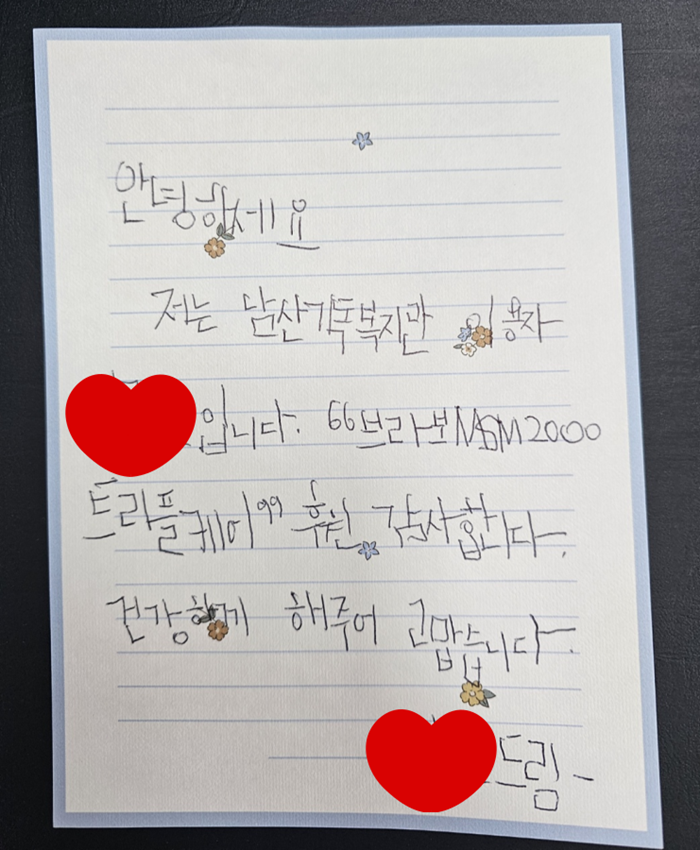 안녕하세요
저는 남산기독복지만 이용자
입니다. 66브라보MSM2000
트리플케이99 후원 감사합니다.
건강하게 해주어 고맙습니다.
드림-